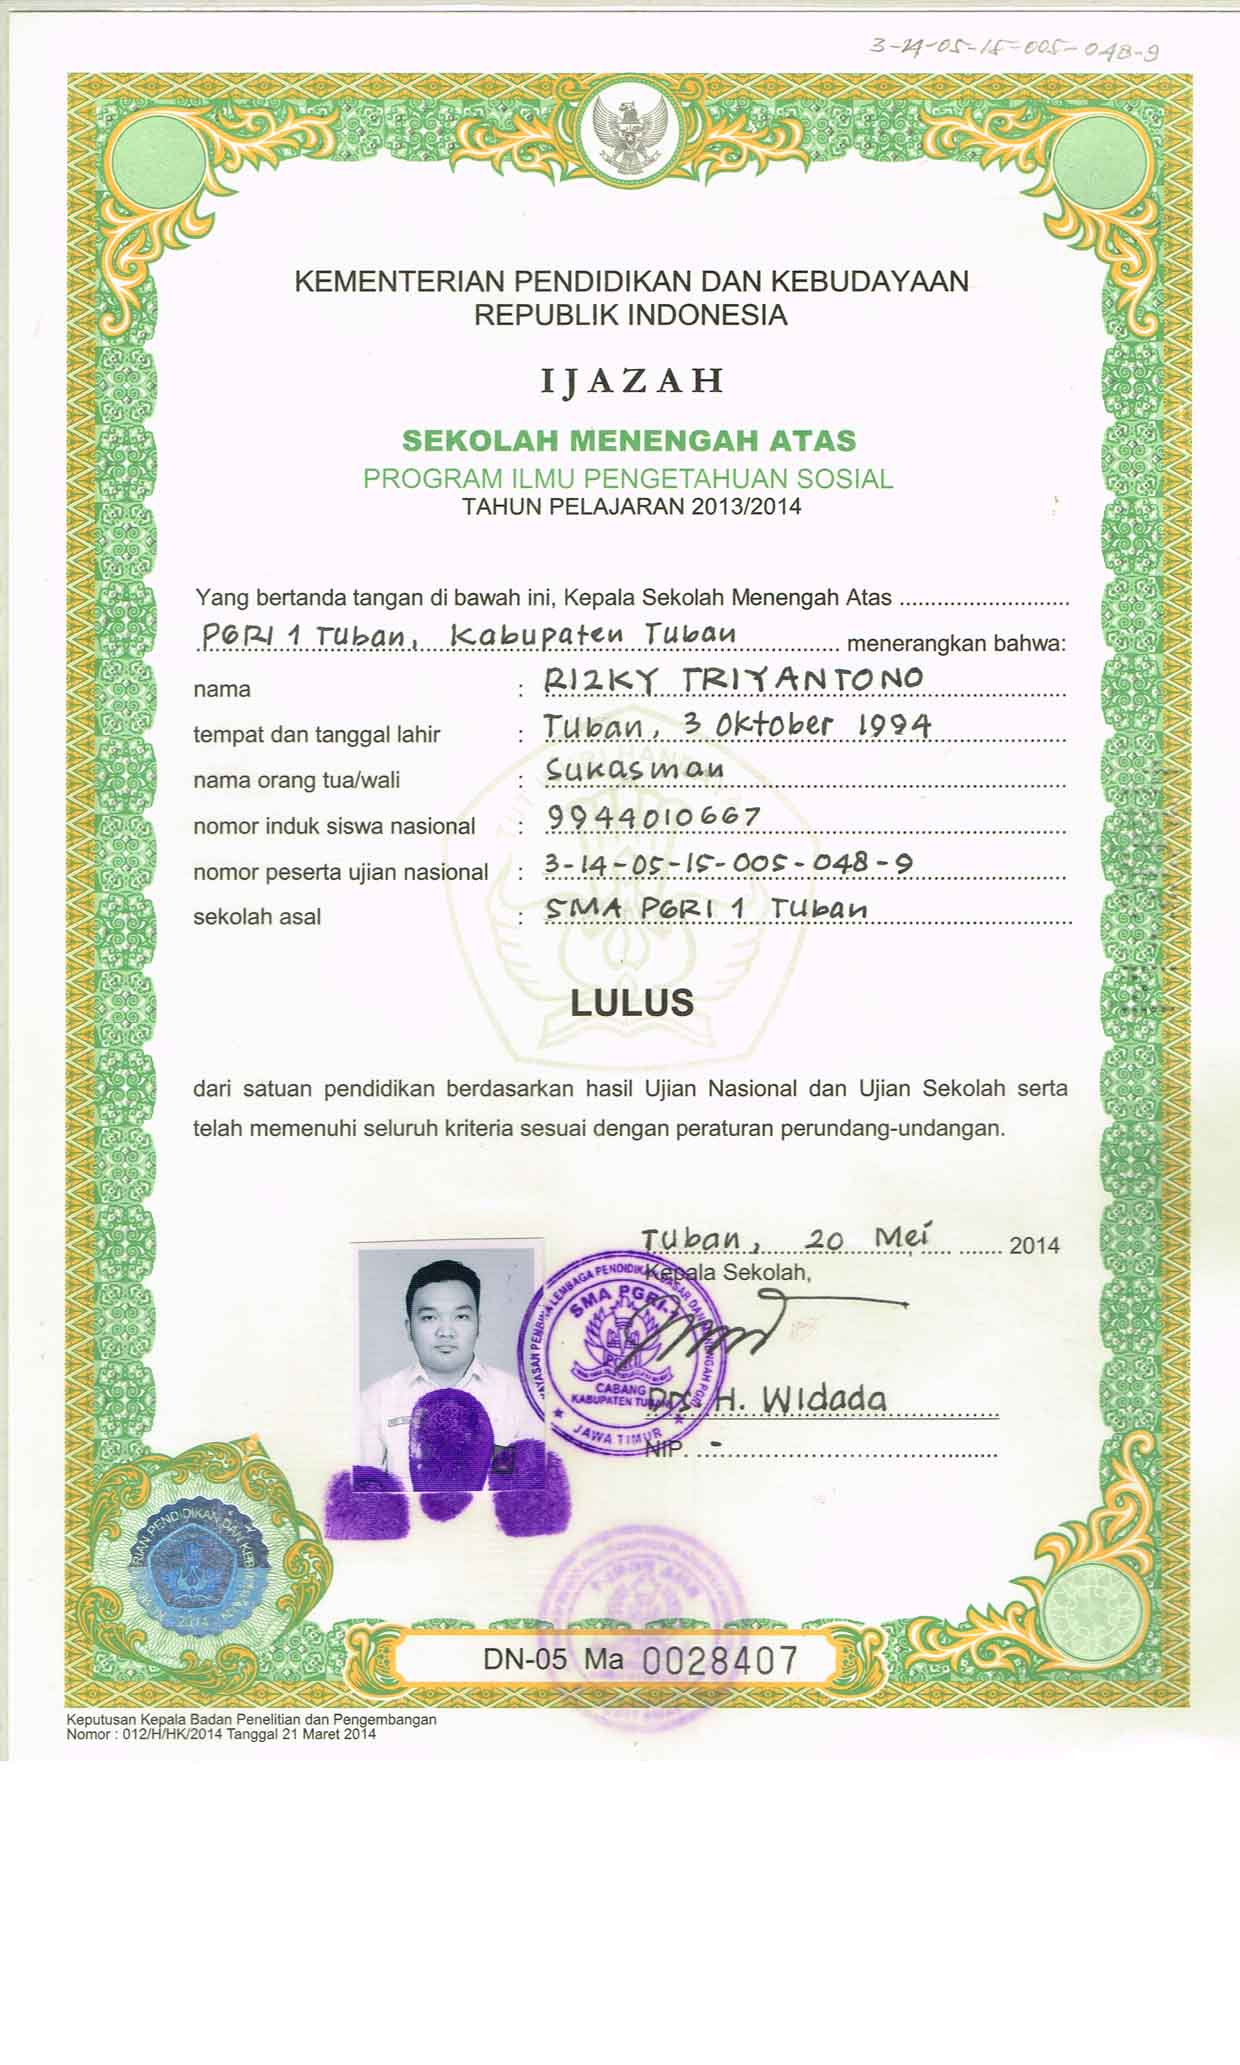 3-14-05-15-005-048-9
KEMENTERIAN PENDIDIKAN DAN KEBUDAYAAN
REPUBLIK INDONESIA
IJAZAH
SEKOLAH MENENGAH ATAS
PROGRAM ILMU PENGETAHUAN SOSIAL
TAHUN PELAJARAN 2013/2014
Yang bertanda tangan di bawah ini, Kepala Sekolah Menengah Atas
PGRI 1 Tuban, Kabupaten Tuban menerangkan bahwa:
nama : RIZKY TRIYANTONO
tempat dan tanggal lahir : Tuban, 3 Oktober 1994
nama orang tua/wali : Sukasman
nomor induk siswa nasional : 9944010667
nomor peserta ujian nasional : 3-14-05-15-005-048-9
sekolah asal : SMA PGRI 1 Tuban
LULUS
dari satuan pendidikan berdasarkan hasil Ujian Nasional dan Ujian Sekolah serta
telah memenuhi seluruh kriteria sesuai dengan peraturan perundang-undangan.
Tuban, 20 Mei 2014
Kepala Sekolah,
YAYASAN PEMBINA LEMBAGA PENDIDIKAN DASAR DAN MENENGAH PGRI
SMA PGRI-1
PGRI
CABANG
KABUPATEN TUBAN
JAWA TIMUR
DRS H. Widada
NIP. -
PENDIDIKAN DAN
2014
DN-05 Ma 0028407
Keputusan Kepala Badan Penelitian dan Pengembangan
Nomor : 012/H/HK/2014 Tanggal 21 Maret 2014